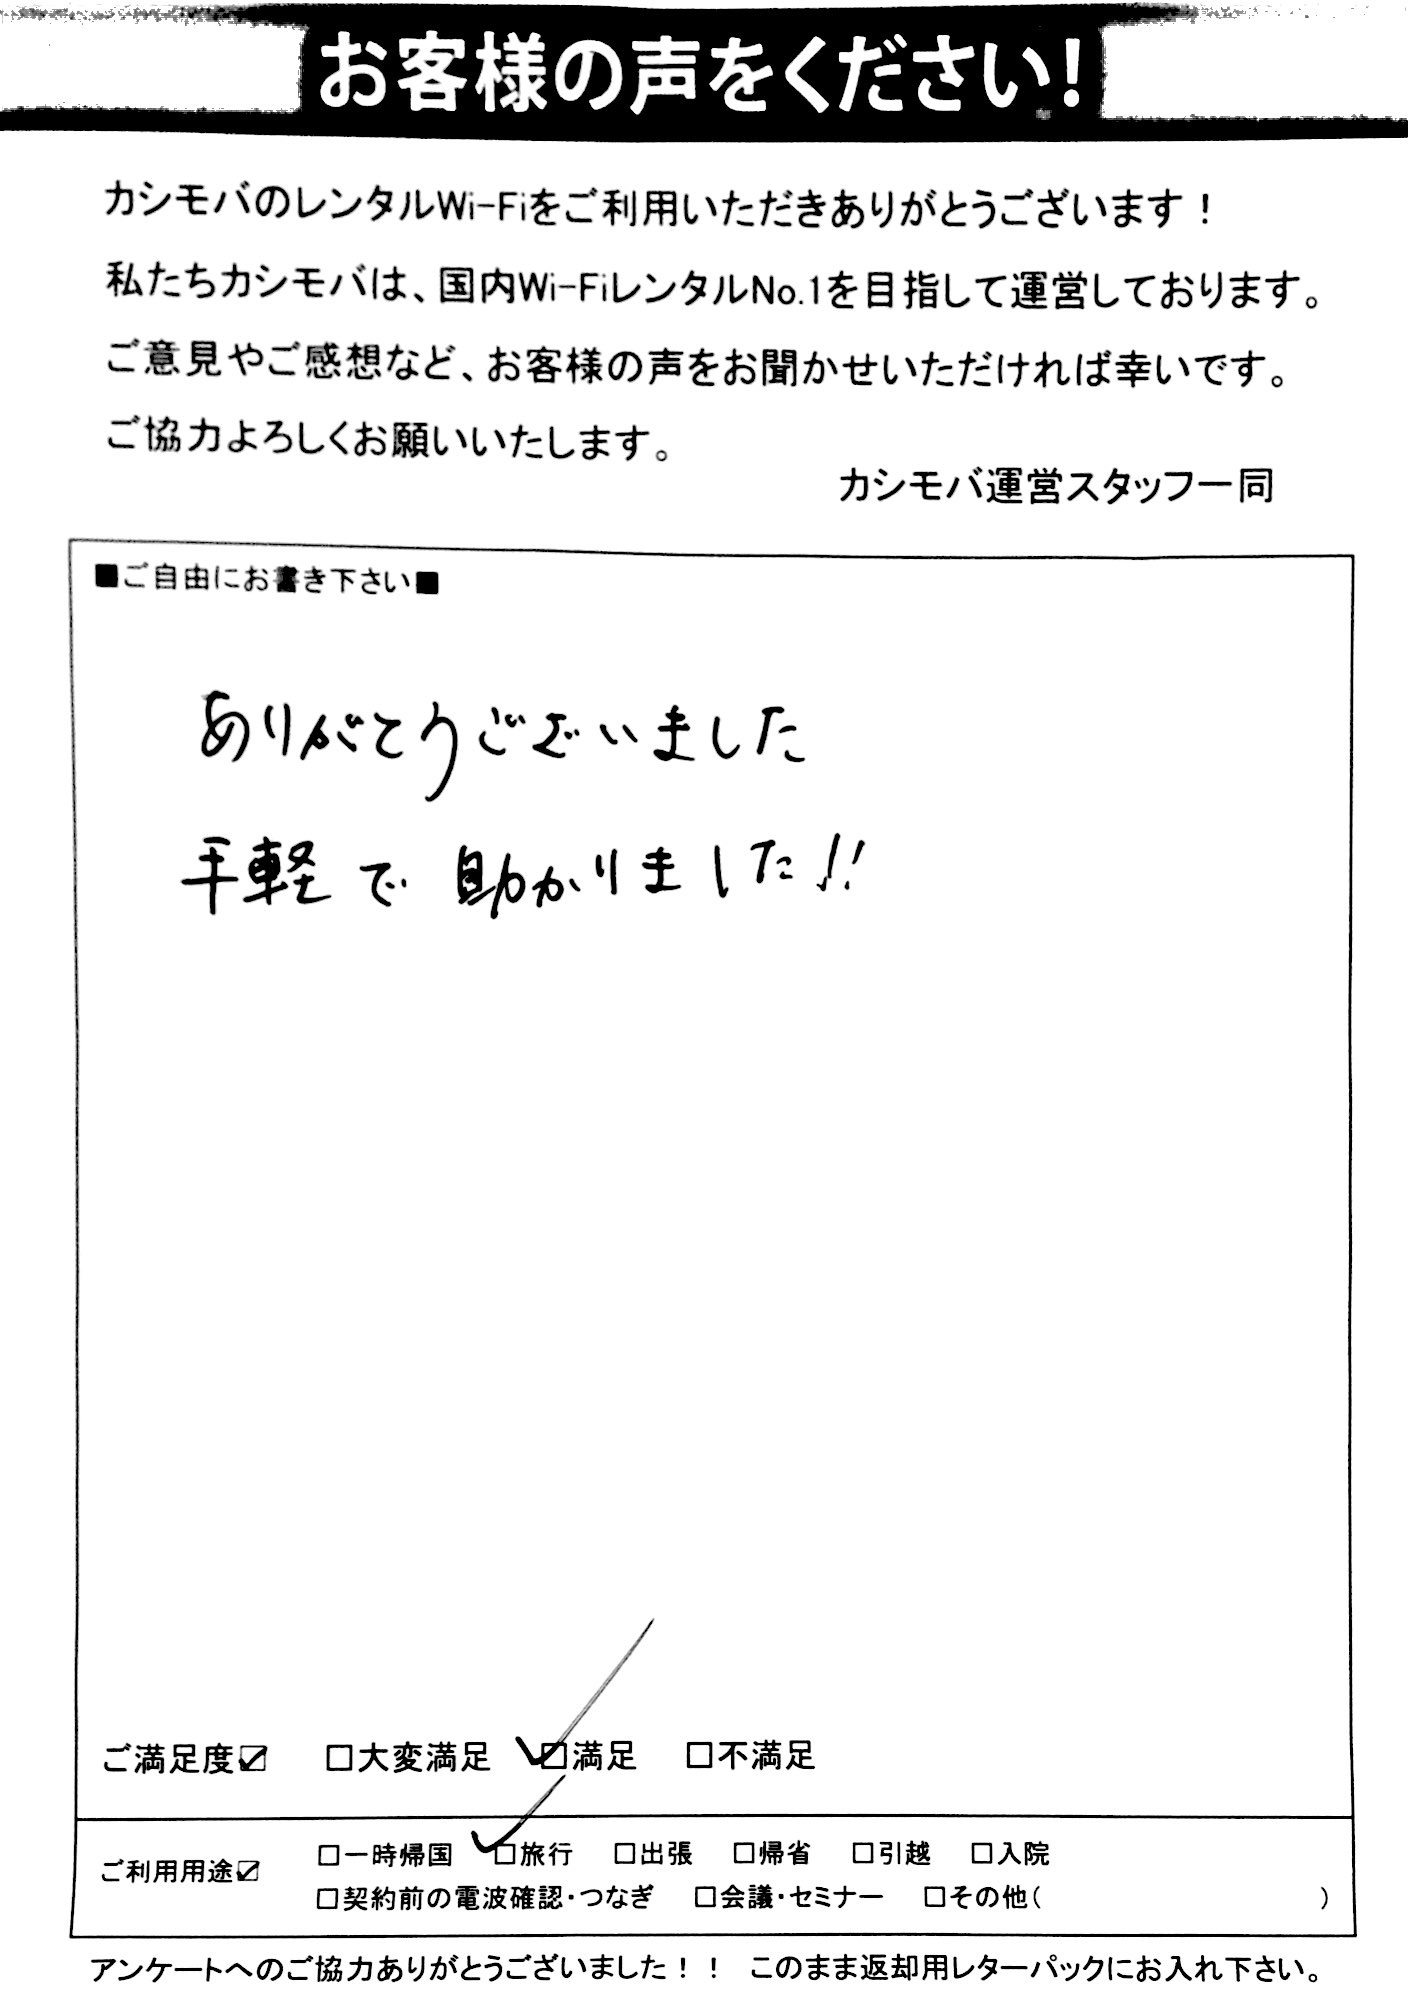 お客様の声をください!
カシモバのレンタルWi-Fiをご利用いただきありがとうございます！
私たちカシモバは、国内Wi-FiレンタルNo.1を目指して運営しております。
ご意見やご感想など、お客様の声をお聞かせいただければ幸いです。
ご協力よろしくお願いいたします。
カシモバ運営スタッフ一同
■ご自由にお書き下さい■
ありがとうございました
手軽で助かりました!!
ご満足度☑ □大変満足 ☑満足 □不満足
ご利用用途☑ □一時帰国 ☑旅行 □出張 □帰省 □引越 □入院
□契約前の電波確認・つなぎ □会議・セミナー □その他( )
アンケートへのご協力ありがとうございました！！ このまま返却用レターパックにお入れ下さい。